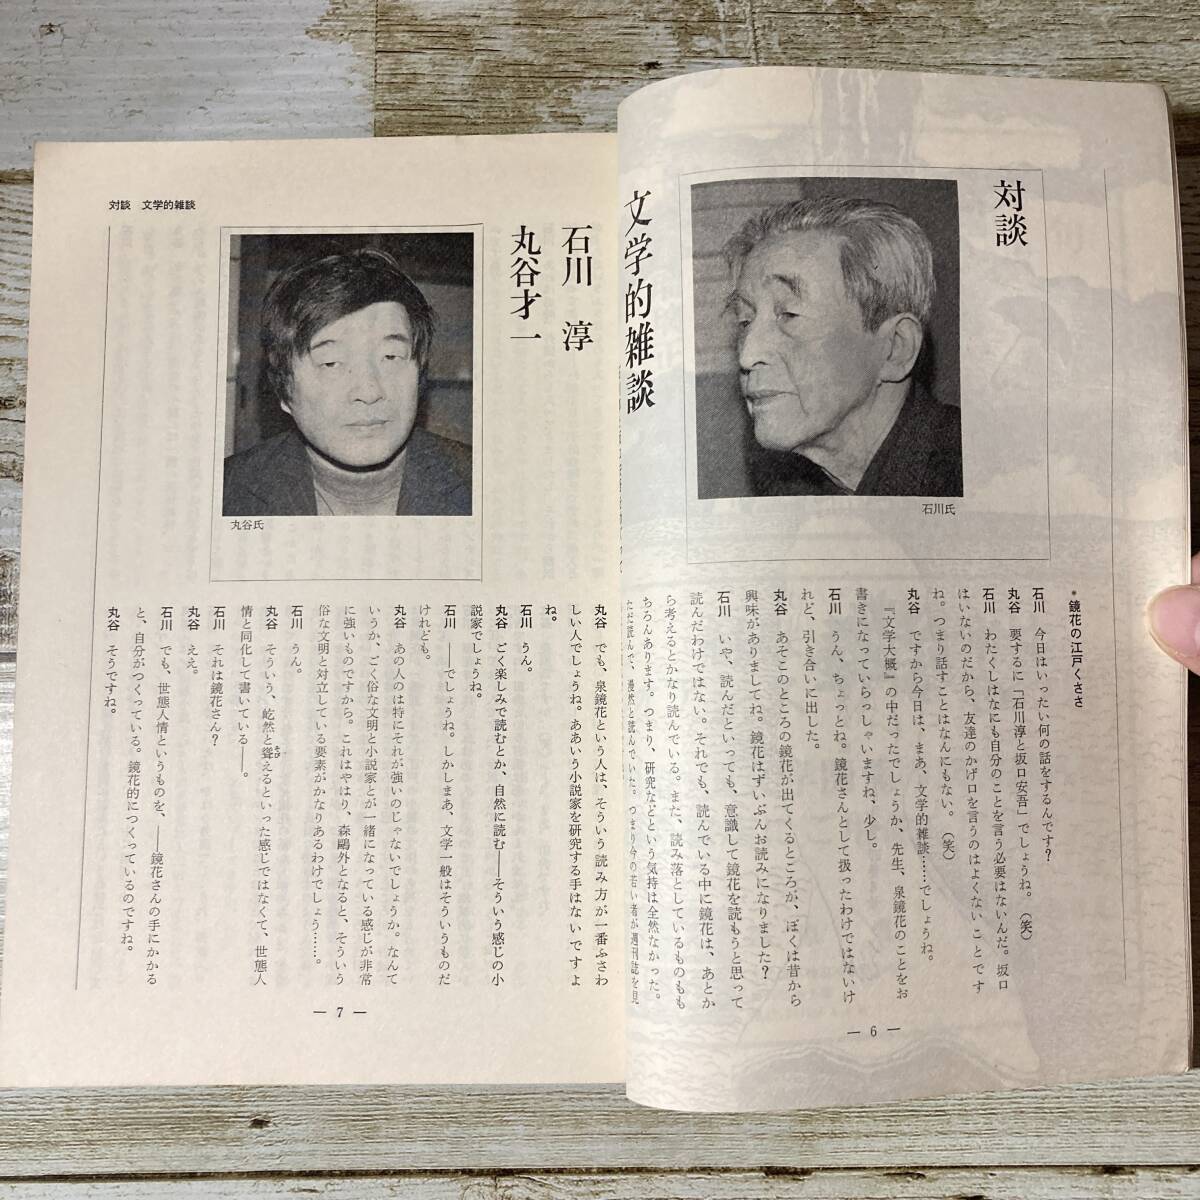 対談
文学的雑談
石川氏
*鏡花の江戸くささ
石川　今日はいったい何の話をするんです？
丸谷　要するに「石川淳と坂口安吾」でしょうね。（笑）
石川　わたくしはなにも自分のことを言う必要はないんだ。坂口
はいないのだから、友達のかげ口を言うのはよくないことです
ね。つまり話すことはなんにもない。（笑）
丸谷　ですから今日は、まあ、文学的雑談……でしょうね。
『文学大概』の中だったでしょうか、先生、泉鏡花のことをお
書きになっていらっしゃいますね、少し。
石川　うん、ちょっとね。鏡花さんとして扱ったわけではないけ
れど、引き合いに出した。
丸谷　あそこのところの鏡花が出てくるところが、ぼくは昔から
興味がありましてね。鏡花はずいぶんお読みになりました？
石川　いや、読んだといっても、意識して鏡花を読もうと思って
読んだわけではない。それでも、読んでいる中に鏡花は、あとか
ら考えるとかなり読んでいる。また、読み落としているものもも
ちろんあります。つまり、研究などという気持は全然なかった。
ただ読んで、漫然と読んでいた。つまり今の若い者が週刊誌を見
— 6 —
対談　文学的雑談
石川　淳
丸谷才一
丸谷氏
丸谷　でも、泉鏡花という人は、そういう読み方が一番ふさわ
しい人でしょうね。ああいう小説家を研究する手はないですよ
ね。
石川　うん。
丸谷　ごく楽しみで読むとか、自然に読む——そういう感じの小
説家でしょうね。
石川　——でしょうね。しかしまあ、文学一般はそういうものだ
けれども。
丸谷　あの人のは特にそれが強いのじゃないでしょうか。なんて
いうか、ごく俗な文明と小説家とが一緒になっている感じが非常
に強いものですから。これはやはり、森鷗外となると、そういう
俗な文明と対立している要素がかなりあるわけでしょう……。
石川　うん。
丸谷　そういう、屹然と聳えるといった感じではなくて、世態人
情と同化して書いている——。
石川　それは鏡花さん？
丸谷　ええ。
石川　でも、世態人情というものを、——鏡花さんの手にかかる
と、自分がつくっている。鏡花的につくっているのですね。
丸谷　そうですね。
— 7 —